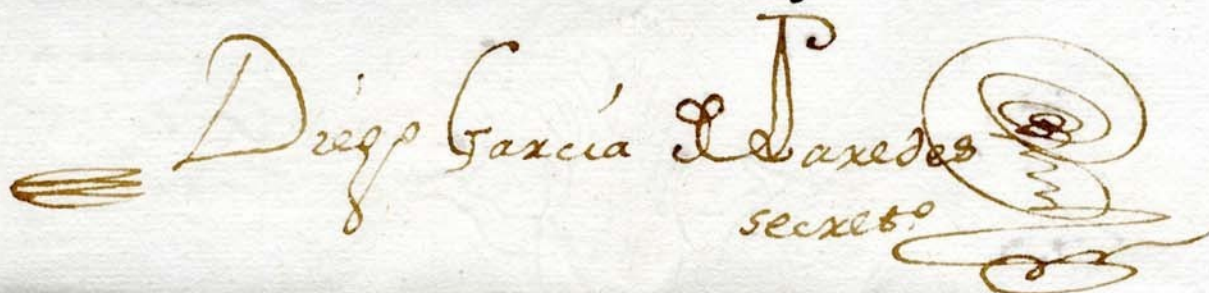 Diego García de Paredes
secret.º